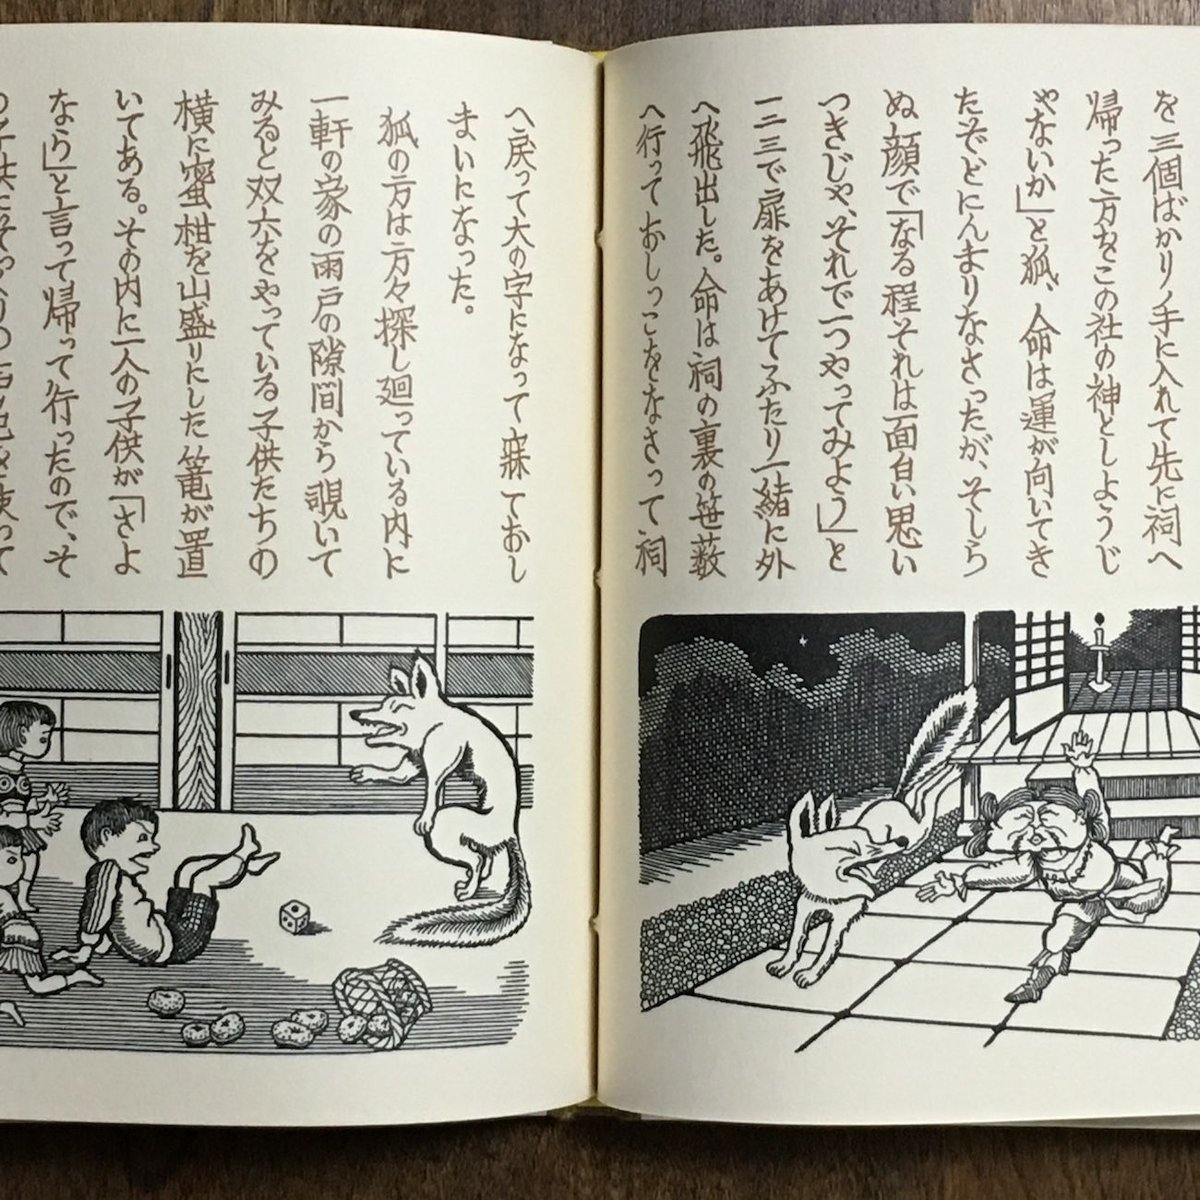 を三個ばかり手に入れて先に祠へ
帰った方をこの社の神としようじ
やないか」と狐、命は運が向いてき
たぞとにんまりなさったが、そしら
ぬ顔で「なる程それは面白い思い
つきじゃ、それで一つやってみよう」と
一二三で扉をあけてふたり一緒に外
へ飛出した。命は祠の裏の笹薮
へ行っておしっこをなさって祠
へ戻って大の字になって寐ておし
まいになった。
狐の方は方々探し廻っている内に
一軒の家の雨戸の隙間から覗いて
みると双六をやっている子供たちの
横に蜜柑を山盛りにした篭が置
いてある。その内に一人の子供が「さよ
なら」と言って帰って行ったので、そ